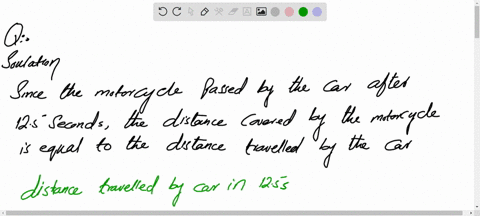 Q:.
Soulation
Since the motorcycle Passed by the car after
12.5 Seconds, the distance covered by the motorcycle
is equal to the distance travelled by the car
distance travelled by car in 12.5s